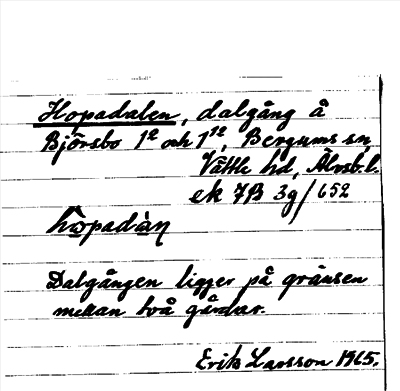 Hopadalen, dalgång å
Björsbo 1² och 1¹², Bergums sn,
Vättle hd, Älvsb. l.
ek 7B 3g/652
hopadàn
Dalgången ligger på gränsen
mellan två gårdar.
Erik Larsson 1965.